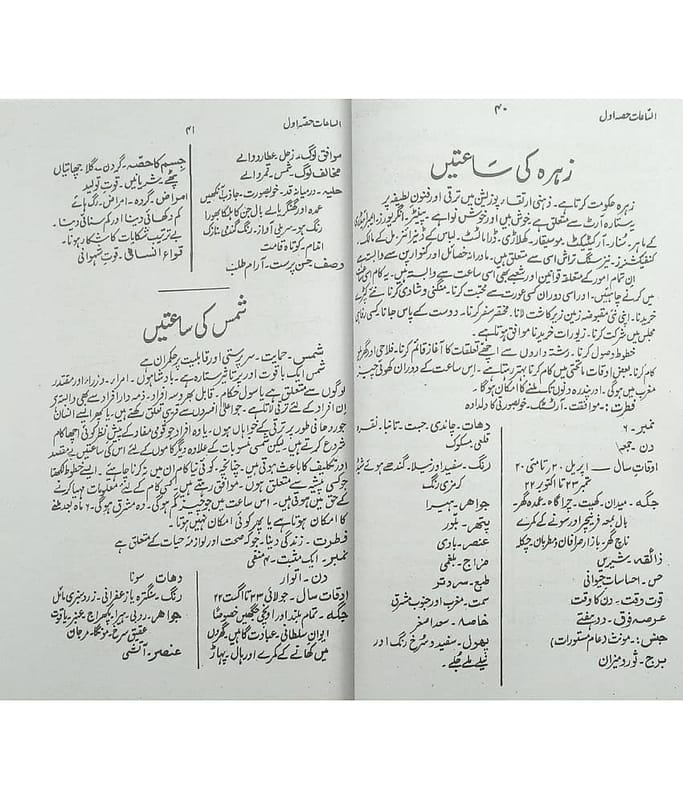 الساعات حصہ اول
۴۰
زہرہ کی ساعتیں
زہرہ حکومت کرتا ہے۔ ذہنی ارتقاء، پوزلیشن میں ترقی اور فنون لطیفہ پر
یہ ستارہ آرٹ سے متعلق ہے خوش میں اور خوش نوا ہے۔ پینٹر۔
کے ماہر۔ سُنار۔ آرکیٹیکٹ۔ موسیقار۔ کھلاڑی۔ ڈراماٹسٹ۔ لباس کے ڈیزائنر۔ مل کے مالک۔
کنفیکشنرز۔ سنگ تراشی اسی سے متعلق ہیں۔ مادرانہ خصائل اور کنوارپن سے وابستہ ہے
ان تمام امور کے متعلقہ قوانین اور شعبے بھی اسی ساعت سے وابستہ ہیں۔ یہ کام اسی
میں کرنے چاہئیں۔ اور اسی دوران کسی عورت سے محبت کرنا۔ منگنی و شادی کرنا نئے کپڑے
خریدنا۔ اپنی نئی مقبوضہ زمین زیر کاشت لانا۔ مختصر سفر کرنا۔ دوست کے پاس جانا کسی
مجلس میں شرکت کرنا۔ زیورات خریدنا موافق ہوتا ہے۔
خطوط وصول کرنا۔ رشتہ داروں سے اچھے تعلقات کا آغاز قائم کرنا۔ فلاحی اور گھریلو
کام کرنا۔ بعض اوقات ماتحتی میں کام کرنا بہتر رہتا ہے۔ اس ساعت کے دوران کھوئی چیز
مغرب میں ہوگی۔ اور پندرہ دنوں تک ملنے کا امکان ہوگا۔
فطرت:۔ موافقت۔ آرٹسٹک۔ خوبصورتی کا دلدادہ
نمبر۔ ۶
دن۔ جمعہ
اوقات سال۔ اپریل ۲۰ تا مئی ۲۰
ستمبر ۲۳ تا اکتوبر ۲۲
جگہ۔ میدان۔ کھیت۔ چراگاہ۔ عمدہ گھر۔
ہال بمعہ فرنیچر اور سونے کے کمرے
ناچ گھر۔ بازار صرافان و مطربان۔ چکلہ
ذائقہ۔ شیریں
حس۔ احساسات حیوانی
قوت وقت۔ دن کا وقت
عرصہ فوق۔ دو ہفتے
جنس:۔ مونث (عام مستورات)
برج۔ ثور و میزان
دھات۔ چاندی۔ جست۔ تانبا۔ نقرہ
قلعی۔ مسکوک
رنگ۔ سفید اور نیلا۔ گندھے ہوئے
کرمزی رنگ
جواہر۔ ہیرا
پتھر۔ بلور
عنصر۔ بادی
مزاج۔ بلغمی
طبع۔ سرد تر
سمت۔ مغرب اور جنوب مشرق
خاصہ۔ سعد اصغر
پھول۔ سفید و سرخ رنگ اور
نیلے ملے جُلے۔
الساعات حصہ اول
۴۱
موافق لوگ۔ زحل۔ عطارد والے
مخالف لوگ۔ شمس۔ قمر والے
حلیہ۔ درمیانہ قد۔ خوبصورت۔ جاذب آنکھیں
عمدہ اور گھنگریالے بال جن کا ہلکا بھورا
رنگ ہو۔ سریلی آواز۔ رنگ گندمی نازک
اندام۔ کوتاہ قامت
وصف۔ حسن پرست۔ آرام طلب
جسم کا حصہ۔ گردن۔ گلا۔ چھاتیاں
پٹھے۔ شریانیں۔ قوت تولید
امراض۔ گردہ۔ امراض۔ رنگ ہائے
کم دکھائی دینا۔ اور کم سنائی دینا۔
بے ترتیب شکایات کا شکار ہونا۔
قواء انسانی۔ قوت شہوانی
شمس کی ساعتیں
شمس۔ حمایت۔ سرپرستی اور قابلیت پر حکمران ہے
شمس ایک باقوت اور پرتاثیر ستارہ ہے۔ بادشاہوں۔ امراء۔ وزراء اور مقتدر
لوگوں سے متعلق ہے یا سول حکام۔ قابل بھروسہ افراد۔ ذمہ دار افراد سے بھی وابستہ
ان افراد کے لئے ترقی لاتا ہے۔ جو اعلیٰ افسروں سے قریبی تعلق رکھتے ہیں۔ یا پھر ایسے انسان
جو روحانی طور پر ترقی کے خواہاں ہوں۔ یا وہ افراد جو قومی مفاد کے پیش نظر کوئی اچھا کام
شروع کرتے ہیں۔ لیکن شمسی منسوبات کے علاوہ دیگر کاموں کے لئے اس کی ساعتیں بے مقصد
اور تکلیف کا باعث ہوتی ہیں۔ چنانچہ کوئی نیا کام ان میں نہ کرنا چاہئیے۔ ایسے خطوط لکھنا
جو کسی پیشہ سے متعلق ہوں۔ موافق رہتے ہیں۔ کسی کام کے لئے معلومات مہیا کرنے
کے حق میں ہوتی ہیں۔ اس ساعت میں جو چیز گم ہوگی۔ وہ مشرق ہوگی۔ ۶ ماہ بعد ملنے
کا امکان ہوتا ہے یا پھر کوئی امکان نہیں ہوتا۔
فطرت۔ زندگی دینا۔ جو کہ صحت اور لوازمہ حیات کے متعلق ہے
نمبر۔ ایک مثبت۔ ۴ منفی
دن۔ اتوار
اوقات سال۔ جولائی ۲۳ تا اگست ۲۲
جگہ۔ تمام بلند اور اونچی جگہیں خصوصاً
ایوان سلطانی۔ عبادت گاہیں۔ گھروں
میں کھانے کے کمرے اور ہال۔ پہاڑ
دھات سونا
رنگ۔ سنگترہ یا زعفرانی۔ زرد ہنری مائل
جواہر۔ روبی۔ ہیرا۔ پکھراج۔ عنبر۔ یاقوت
عقیق سرخ۔ مونگا۔ مرجان
عنصر۔ آتشی